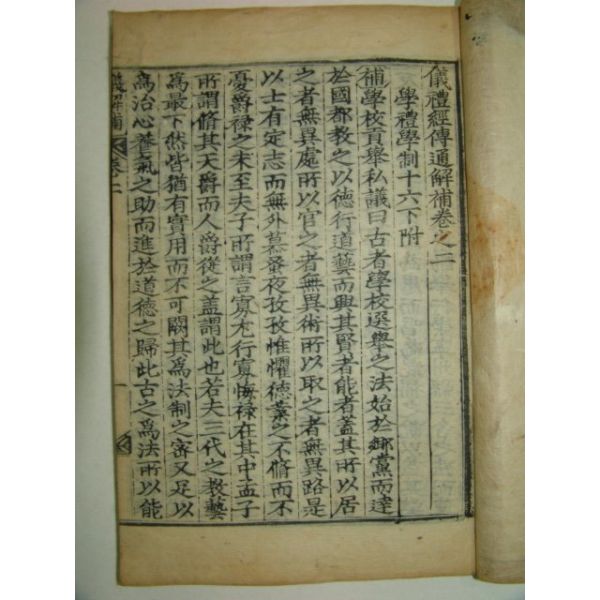 儀禮經傳通解補卷之二
學禮學制十六下附
補學校貢舉私議曰古者學校選舉之法始於鄕黨而達
於國都敎之以德行道藝而興其賢者能者蓋其所以居
之者無異處所以官之者無異術所以取之者無異路是
以士有定志而無外慕蚤夜孜孜惟懼德業之不脩而不
憂爵祿之未至夫子所謂言寡尤行寡悔祿在其中孟子
所謂脩其天爵而人爵從之蓋謂此也若夫三代之敎藝
爲最下然皆猶有實用而不可闕其爲法制之密又足以
爲治心養氣之助而進於道德之歸此古之爲法所以能
儀解補 卷二 一